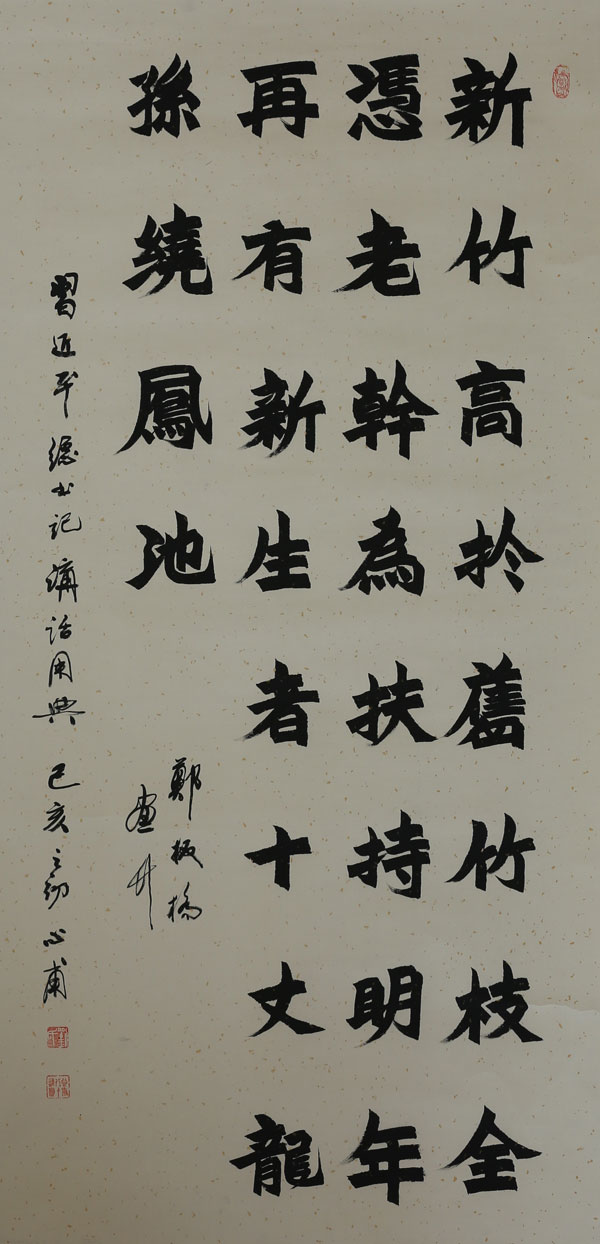 新竹高扵舊竹枝全
憑老幹為扶持明年
再有新生者十丈龍
孫繞鳳池
鄭板橋
畫竹
習近平總书記講話用典 己亥之初 心甫